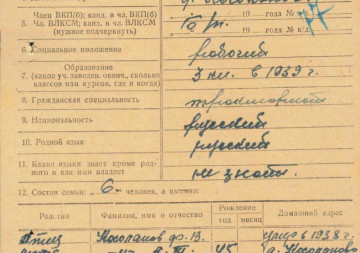 Член ВКП(б); канд. в чл. ВКП(б)
5. Чл. ВЛКСМ; канд. в чл. ВЛКСМ
(нужное подчеркнуть)
19 года № к/д.
19 года № ч/б.
6. Социальное положение рабочий
Образование
7. (какое уч. заведен. оконч., сколько классов или курсов, где и когда) 3 кл. в 1939 г.
8. Гражданская специальность тракторист
9. Национальность русский
10. Родной язык русский
11. Какие языки знает кроме родного и как ими владеет не знает.
12. Состав семьи: 6 человек, а именно:
Родство
Фамилия, имя и отчество
Рождение
год месяц
Домашний адрес
Отец Косолапов 1938 г.
45 Косолапово